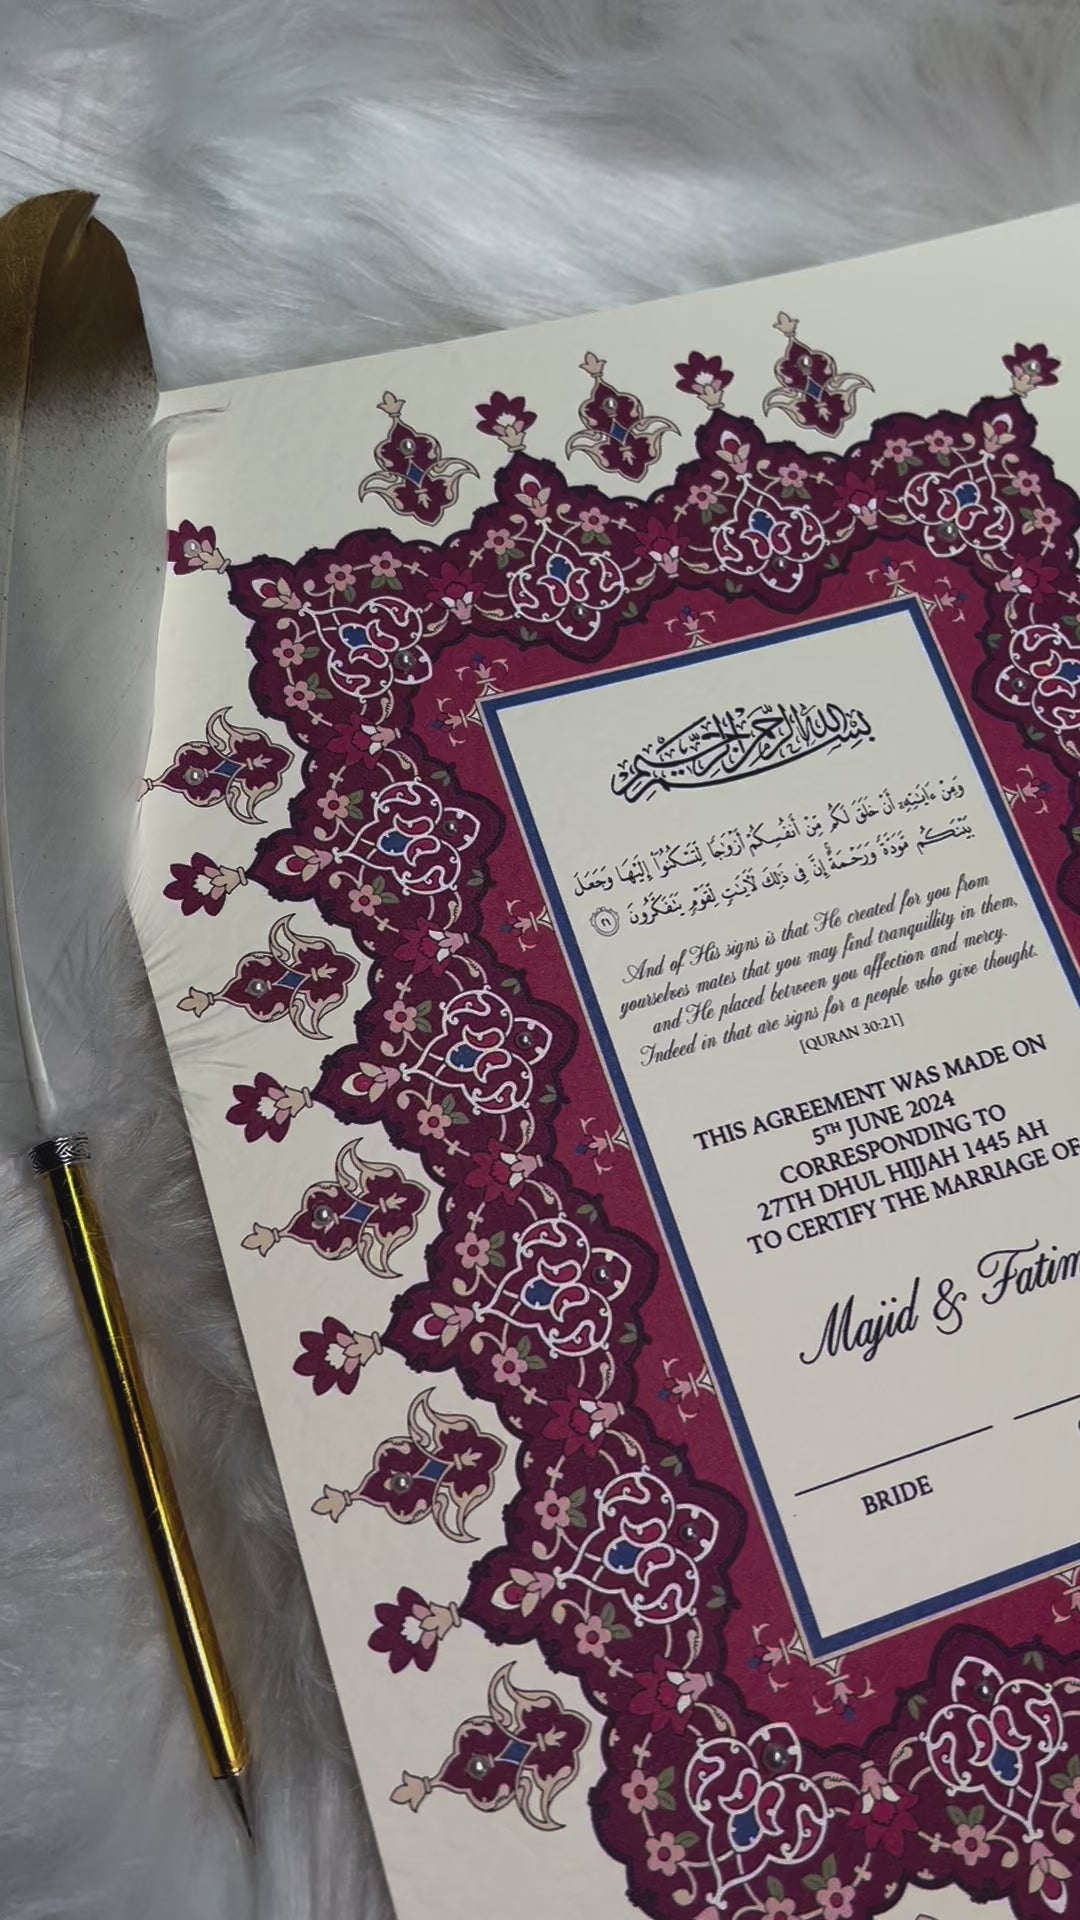 بسم الله الرحمن الرحيم
وَمِنْ ءَايَٰتِهِۦٓ أَنْ خَلَقَ لَكُم مِّنْ أَنفُسِكُمْ أَزْوَٰجًا لِّتَسْكُنُوٓا۟ إِلَيْهَا وَجَعَلَ
بَيْنَكُم مَّوَدَّةً وَرَحْمَةً إِنَّ فِى ذَٰلِكَ لَءَايَٰتٍ لِّقَوْمٍ يَتَفَكَّرُونَ ٢١
And of His signs is that He created for you from
yourselves mates that you may find tranquillity in them,
and He placed between you affection and mercy.
Indeed in that are signs for a people who give thought.
[QURAN 30:21]
THIS AGREEMENT WAS MADE ON
5TH JUNE 2024
CORRESPONDING TO
27TH DHUL HIJJAH 1445 AH
TO CERTIFY THE MARRIAGE OF
Majid & Fatim
BRIDE